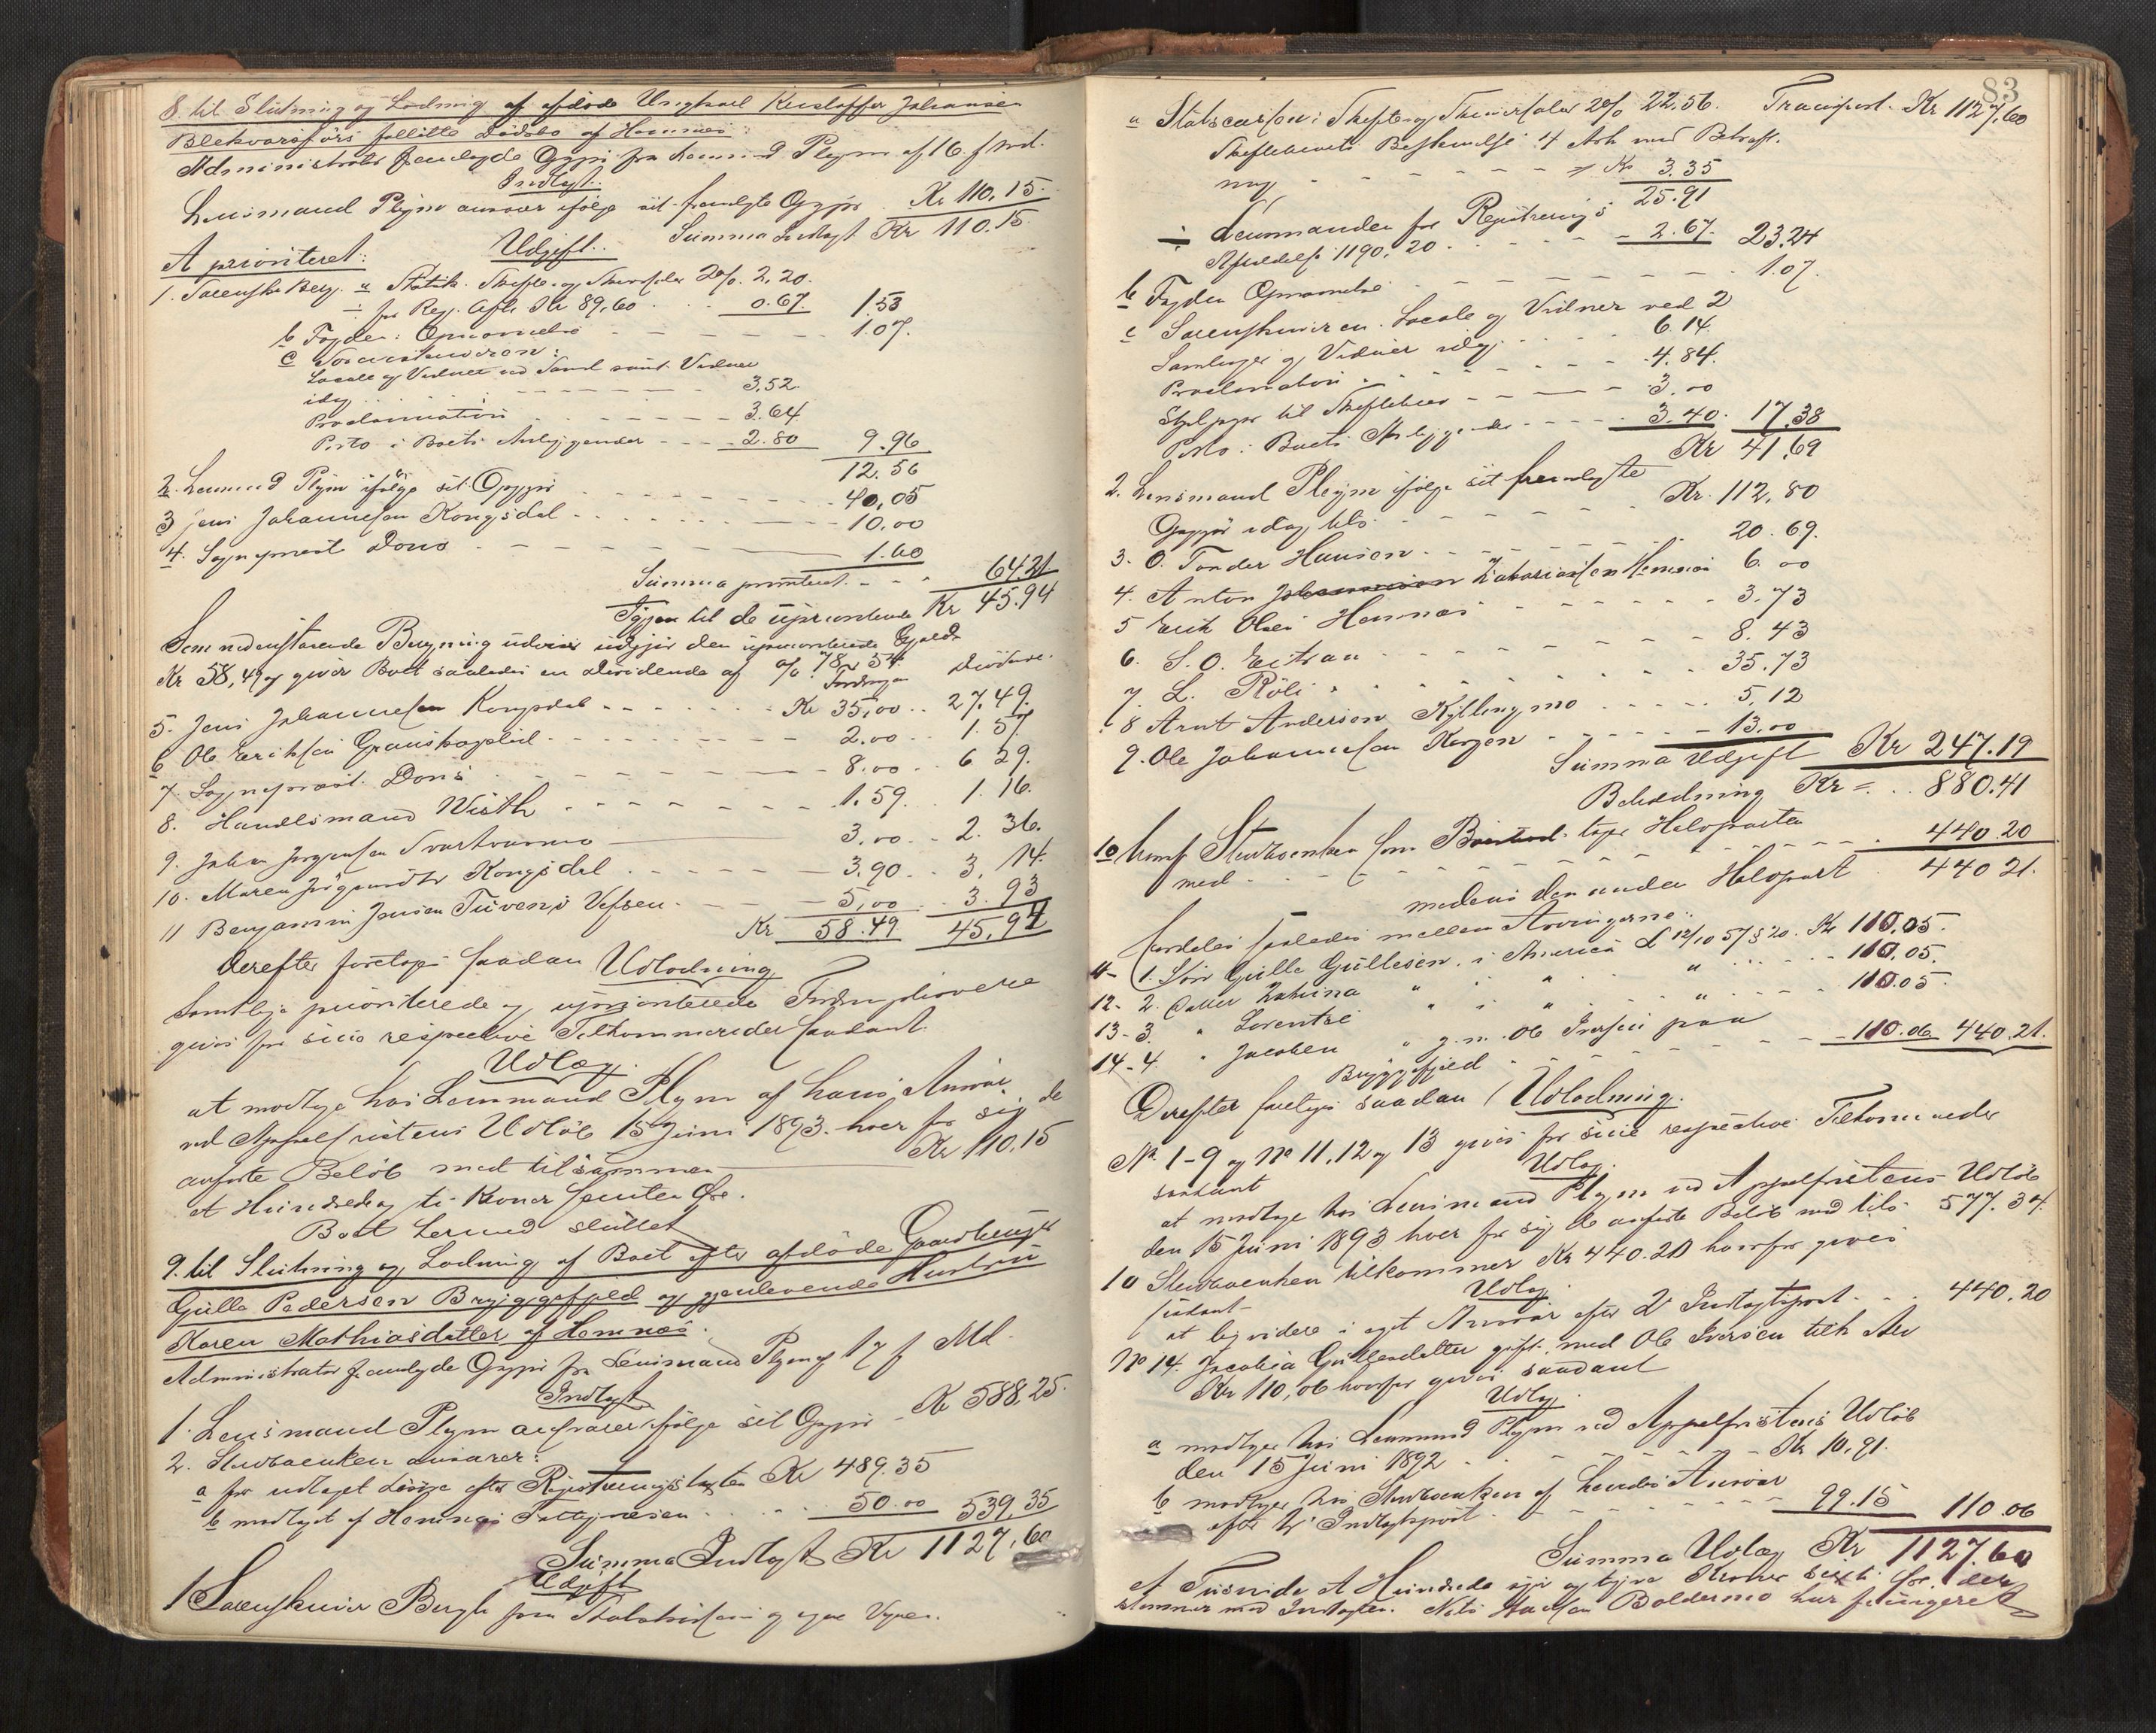 8. til Slutning og Lodning af afdøde Ungkarl Kristoffer Johansen
Blekvasfors fallitte Dødsbo af Hemnes:
Administrator fremlagde Opgjør fra Lensmand Pleym af 16. f. Md.
Indtægt:
Lensmand Pleym ansvar ifølge sit fremlagte Opgjør Kr 110.15.
Summa Indtægt Kr 110.15
A prioriteret: Udgift:
1. Sorenskr Berg. a Statsk. Skifte- og Skriversalær 2% 2,20.
÷ for Reg. Afh. Kr 89,60 0.67. 1.53
b Fogden: Opnævnelse 1.07.
c Sorenskriveren:
Locale og Vidner ved Saml samt Vidner
idag 3,52.
Proclamation 3.64
Porto i Boets Anliggender 2.80 9.96
12.56
2. Lensmand Pleym ifølge sit Opgjør 40,05
3 Jens Johannesen Kongsdal 10,00
4. Sogneprest Dons 1.60
Summa prioriteret 64.21
Igjen til de uprioriterede Kr 45.94
Som nedenstaaende Beregning udviser udgjør den uprioriterede Gjæld
Kr 58,49 og giver Boet saaledes en Dividende af % 78,54.
Fordringen Dividende.
5. Jens Johannesen Kongsdal Kr 35,00 27,49.
6 Ole Eriksen 2.00 1.57
7. Sogneprest Dons 8.00 6 29.
8. Handlsmand Wisth 1.59. 1.16.
9. Johan Jørgensen Svartvasmo 3.00 2.36.
10. Maren Kongsdal 3.90 3,14.
11 Benjamin Jensen Tuvens Vefsen 5,00 3.93
Kr 58.49 45,94
Derefter foretoges saadan Udlodning
Samtlige prioriterede og uprioriterede Fordringshavere
gives for sine respective Tilkommender saadant
Udlæg:
at modtage hos Lensmand Pleym af hans Ansvar
ved Appelfristens Udløb 15 Juni 1893. hver for sig de
anførte Beløb med tilsammen Kr 110.15
et Hundrede og ti Kroner femten Øre.
Boet hermed sluttet
9. til Slutning og Lodning af Boet efter afdøde Gaardbruger
Gulle Pedersen Bryggefjeld og gjenlevende Hustru
Karen Mathiasdatter af Hemnes.
Administrator fremlagde Opgjør fra Lensmand Pleym af 17 f Md.
Indtægt
1. Lensmand Pleym ansvarer ifølge sit Opgjør Kr 588,25.
2. Stervboenken ansvarer:
a for udlaget Løsøre efter Registreringstaxten Kr 489.35
b modtaget af Hemnes Fattigvæsen 50.00 539,35
Summa Indtægt Kr 1127,60
Udgift
1 Sorenskriver Bergh paa Statskassens og egne Vegne.
83
a Statscassen: Skifte- og Skriversalær 2% 22.56. Transport. Kr 1127,60
Skiftebrevets Beskrivelse 4 Ark med Bekræft.
ning Kr 3.35
25.91
÷ Lensmanden for Registrerings
Afhandels 1190.20 2.67. 23.24
b Fogden Opnævnelse 1.07.
c Sorenskriveren. Locale og Vidner ved 2
Samlinger og Vidner idag 6.14.
Proclamation 4.84.
Stplpapir til Skiftebrev 3.00
Porto i Boets Anliggender 3.40. 17.38
Kr 41,69
2. Lensmand Pleym ifølge sit fremlagte
Opgjør idag tils. Kr. 112,80
3. O. Tonder Hansen 20.69.
4. Anton Johannesen Zakariassen Hemnes 6.00
5 Erik Olsen Hemnes 3.73
6. S. O. 8.43
7. L. Röli 35.73
8 Arnt Andersen Kyllingmo 5,12
9. Ole Johannesen Korgen 13.00
Summa Udgift Kr 247.19
Beholdning Kr 880.41
10 hvoraf Stervboenken som tager Halvparten
med 440.20
medens den anden Halvpart 440 21.
fordeles saaledes mellem Arvingerne:
11- 1. Søn Gulle Gullesen i America L 12/10 57 § 20. Kr 110,05.
12- 2. Datter " " " 110,05.
13-3. " Lorentse " i " " 110.05.
14-4. " Jacobea " g. m. Ole Iversen paa
Bryggefjeld 110.06 440.21.
Derefter foretages saadan Udlodning.
No. 1-9 og No 11, 12 og 13 gives for sine respective Tilkommender
saadant Udlæg.
at modtage hos Lensmand Pleym ved Appelfristens Udløb
den 15 Juni 1893 hver for sig de anførte Beløb med tils. 577.34.
10 Stervboenken tilkommer Kr 440.20 hvorfor gives
saadant Udlæg
at beg videre i eget Ansvar efter 2' Indtægtspost 440.20
No 14. Jacobea Gullesdatter gift med Ole Iversen tilk Arv
Kr 110,06 hvorfor gives saadant
Udlæg:
a modtages hos Lensmand Pleym ved Appelfristens Udløb
den 15 Juni 1892 Kr 10,91.
b modtages hos Stervboenken af hendes Ansvar
efter 2' Indtægtspost 99.15 110 06
Summa Udlæg Kr 1127.60
et Tusinde et Hundrede syv og tyve Kroner sexti Øre. der
stemmer med Indtægten. Nils Boldermo har fungeret